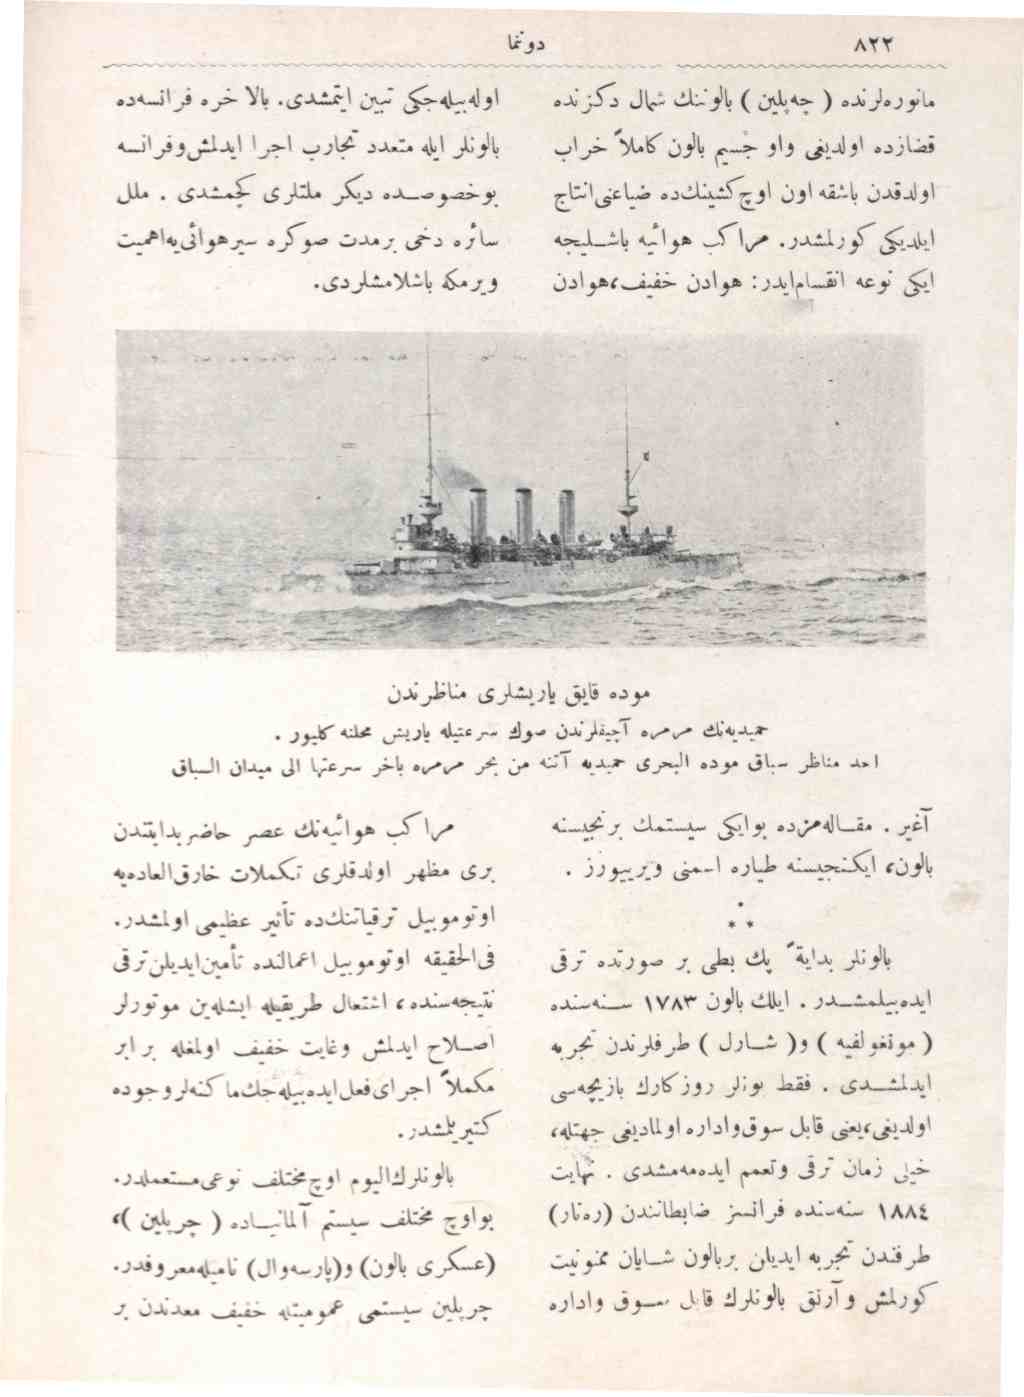 ٨٢٢
دوننما
مانوره‌لرنده ( چه‌پلین ) بالوننك شمال دكزنده
قضازده اولدیغی واو جسیم بالون كاملاً خراب
اولدقدن باشقه اون اوچ كشینك‌ده ضیاعنی انتاج
ایلدیكی كورلمشدر. مراكب هوائیه باشـلیجه
ایكی نوعه انقسام‌ایدر: هوادن خفیف،هوادن
اوله‌بیله‌جكی تبین ایتمشدی. بالا خره فرانسه‌ده
بالونلر ایله متعدد تجارب اجرا ایدلمش‌وفرانسه
بوخصوصـده دیكر ملتلری كچمشدی . ملل
سائره دخی برمدت صوكره سیرهوائی‌یه‌اهمیت
ویرمكه باشلامشلردی.
موده قایق یاریشلری مناظرندن
حمیدیه‌نك مرمره آچیقلرندن صوك سرعتیله یاریش محلنه كلیور .
احد مناظر سباق موده البحری حمیدیه آتنه من بحر مرمره باخر سرعتها الی میدان السباق
آغیر . مقـاله‌مزده بوایكی سیستمك برنجیسنه
بالون، ایكنجیسنه طیاره اسمنی ویرییورز .
*
* *
بالونلر بدایةً پك بطی بر صورتده ترقی
ایده‌بیلمشـدر . ایلك بالون ١٧٨٣ سـنه‌سنده
( مونغولفیه ) و( شـارل ) طرفلرندن تجربه
ایدلمشـدی . فقط بونلر روزكارك بازیچه‌سی
اولدیغی،یعنی قابل سوق‌واداره اولمادیغی جهتله،
خیلی زمان ترقی وتعمم ایده‌مه‌مشدی . نهایت
١٨٨٤ سنه‌سنده فرانسز ضابطانندن (ره‌نار)
طرفندن تجربه ایدیلن بربالون شـایان ممنونیت
كورلمش وآرتق بالونلرك قابل سـوق واداره
مراكب هوائیه‌نك عصر حاضربدایتندن
بری مظهر اولدقلری تكملات خارق‌العاده‌یه
اوتوموبیل ترقیاتنك‌ده تأثیر عظیمی اولمشدر.
فی‌الحقیقه اوتوموبیل اعمالنده تأمین‌ایدیلن‌ترقی
نتیجه‌سنده ، اشتعال طریقیله ایشله‌ین موتورلر
اصـلاح ایدلمش وغایت خفیف اولمغله برابر
مكملاً اجرای‌فعل‌ایده‌بیله‌جك‌ماكنه‌لروجوده
كتیریلمشدر.
بالونلرك‌الیوم اوچ‌مختلف نوعی‌مستعملدر.
بواوچ مختلف سیستم آلمانیـاده ( چرپلین )،
(عسكری بالون) و(پارسه‌وال) نامیله‌معروفدر.
چرپلین سیستمی عمومیتله خفیف معدندن بر